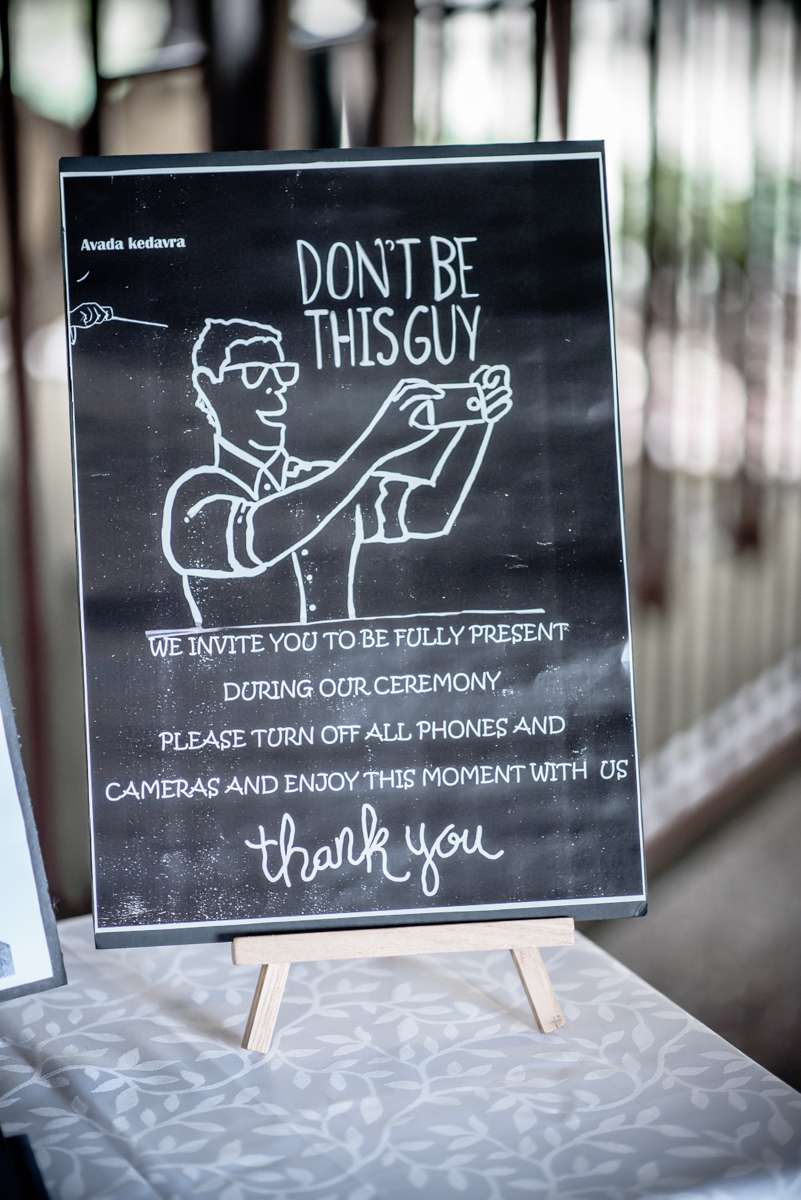 Avada kedavra
DON'T BE
THIS GUY
WE INVITE YOU TO BE FULLY PRESENT
DURING OUR CEREMONY
PLEASE TURN OFF ALL PHONES AND
CAMERAS AND ENJOY THIS MOMENT WITH US
thank you